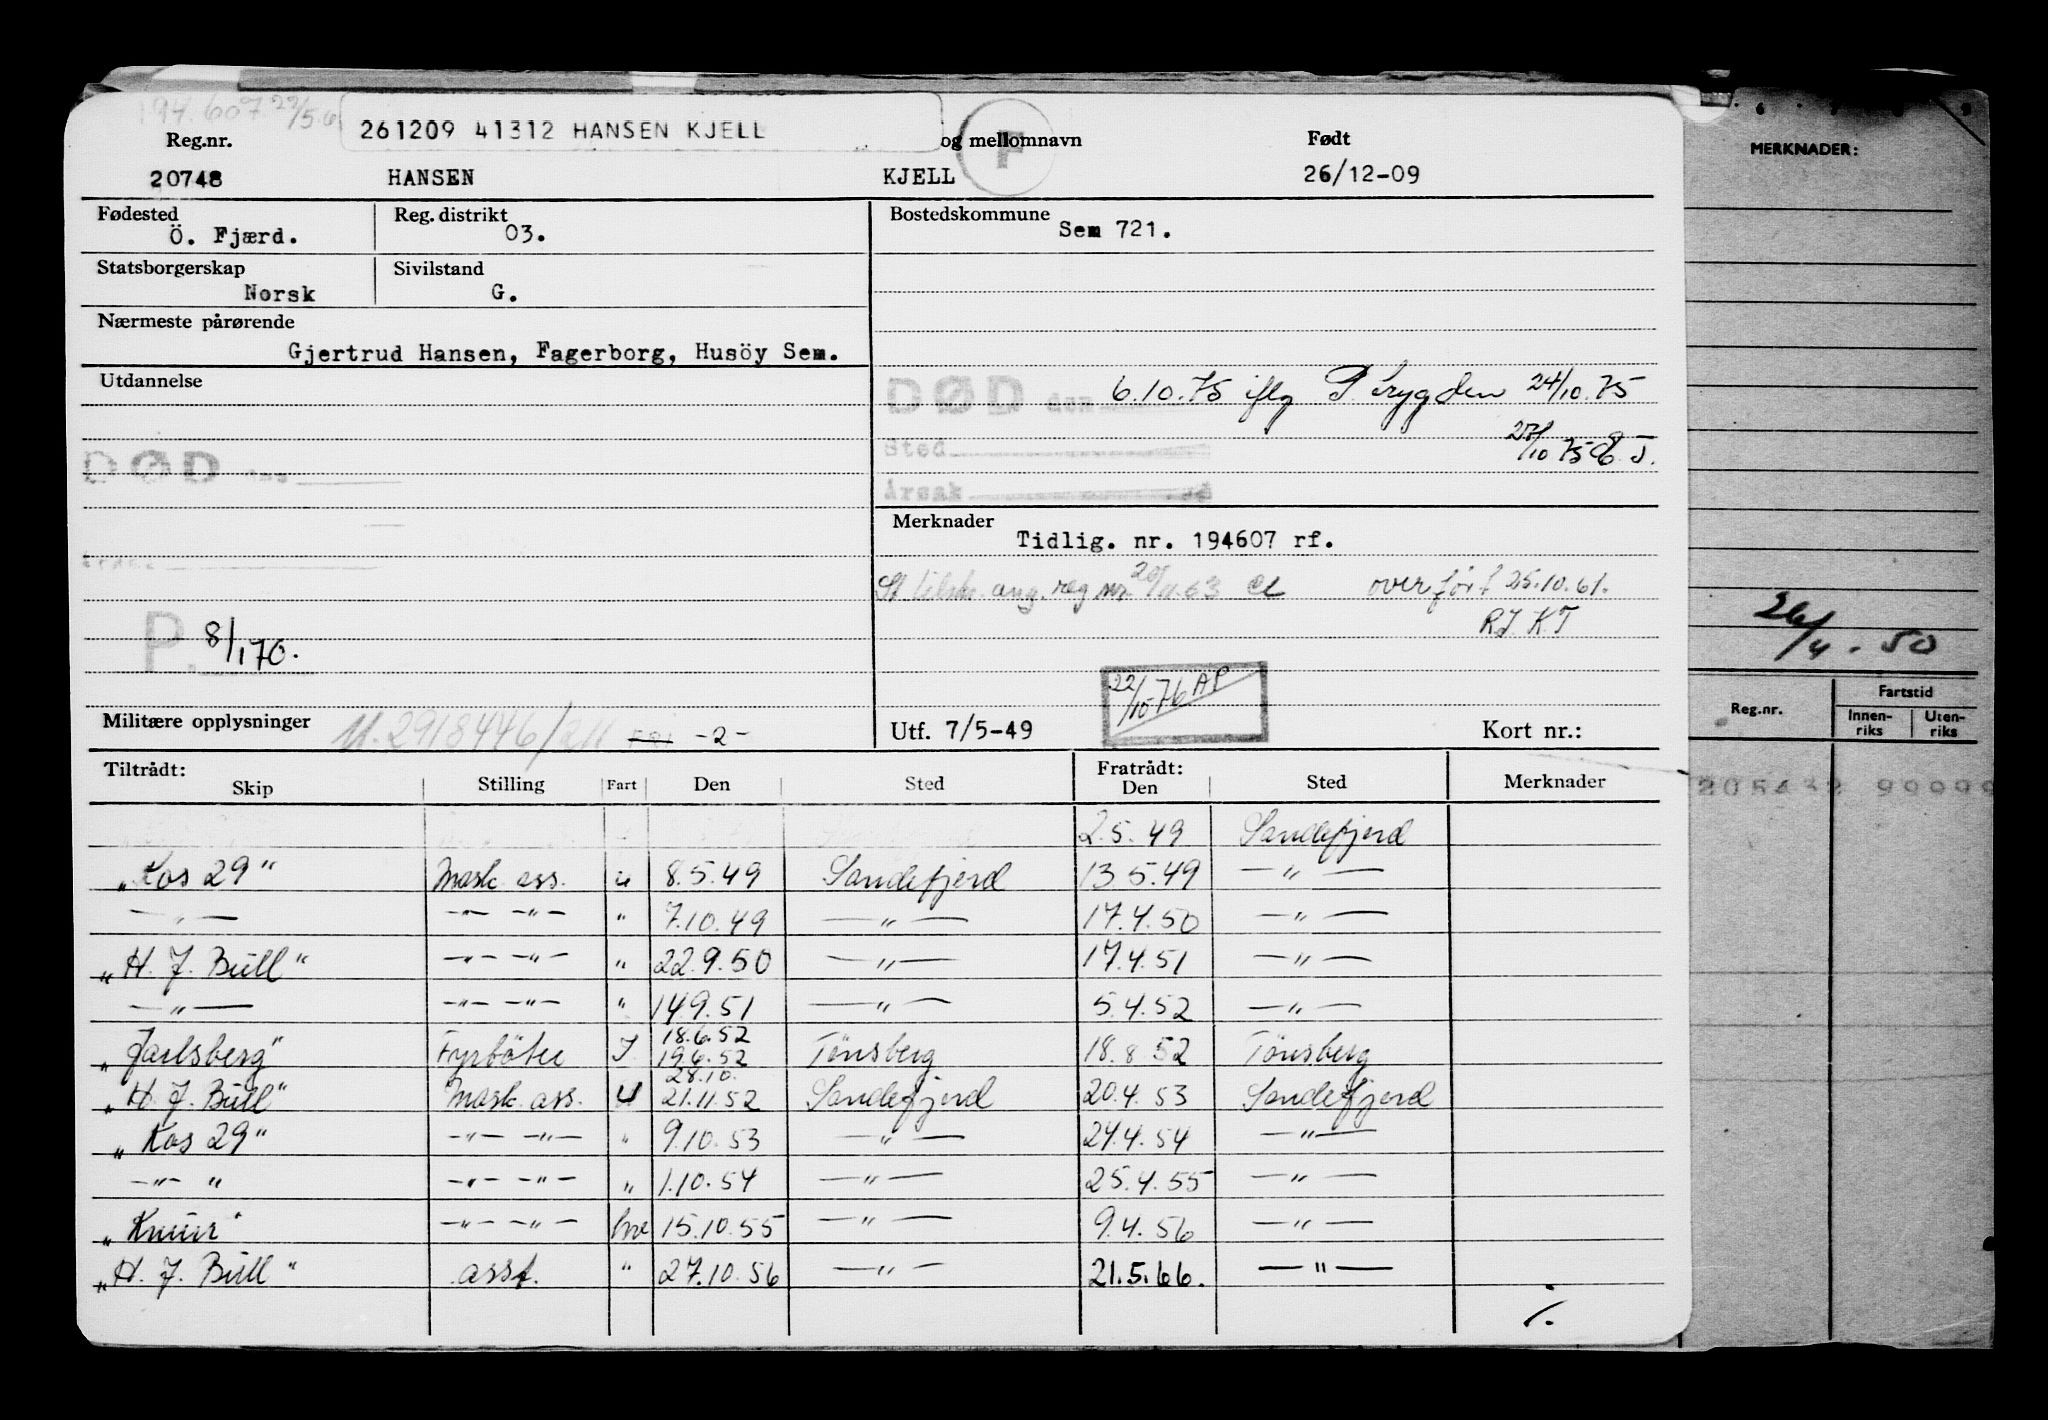 194.607 22/5.6
261209 41312 HANSEN KJELL
Reg.nr. og mellomnavn Født
F
20748 HANSEN KJELL 26/12-09
Fødested Reg. distrikt Bostedskommune
Ö. Fjærd. 03. Sem 721.
Statsborgerskap Sivilstand
Norsk G.
Nærmeste pårørende
Gjertrud Hansen, Fagerborg, Husöy Sem.
Utdannelse
DØD den 6.10.75 iflg P. trygden 24/10.75
Sted
Årsak
DØD den
Merknader
Tidlig. nr. 194607 rf.
overført 25.10.61.
RJ. KT
P. 8/1 70.
22/10 76 AP
Militære opplysninger
M. 2918446/211 -2-
Utf. 7/5-49 Kort nr.:
Tiltrådt: Fratrådt:
Skip Stilling Fart Den Sted Den Sted Merknader
2.5.49 Sandefjord
„Kos 29" Mask. ass. u 8.5.49 Sandefjord 13.5.49 —"—
—"— —"— —"— " 7.10.49 —"— 17.4.50 —"—
„H. J. Bull" —"— —"— " 22.9.50 —"— 17.4.51 —"—
—"— —"— —"— " 14.9.51 —"— 5.4.52 —"—
18.6.52
„Jarlsberg" Fyrböter J. 19.6.52 Tönsberg 18.8.52 Tönsberg
28.10.
„H. J. Bull" Mask. ass. U 21.11.52 Sandefjord 20.4.53 Sandefjord
„Kos 29" —"— —"— " 9.10.53 —"— 24.4.54 —"—
—"— " —"— —"— " 1.10.54 —"— 25.4.55 —"—
„Knurr" —"— —"— hva 15.10.55 —"— 9.4.56 —"—
„H. J. Bull" asst. " 27.10.56 —"— 21.5.66. —"—
·/.
MERKNADER:
26/4.50
Reg.nr. Fartstid
Innen-riks Uten-riks
205432 99999